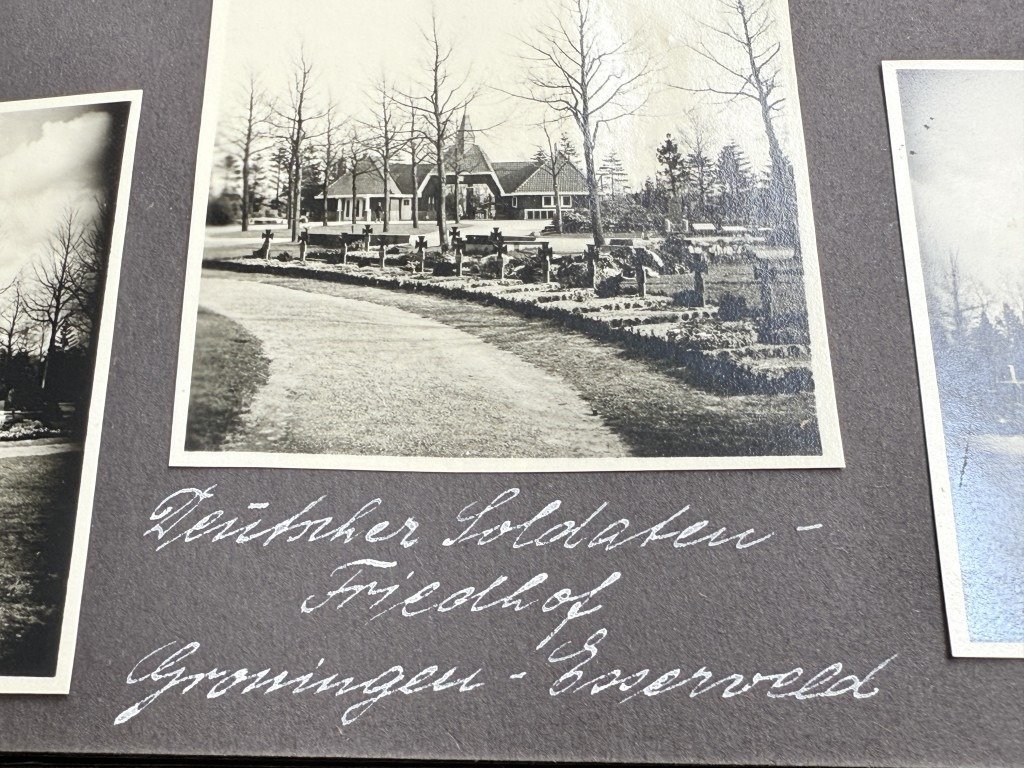 Deutscher Soldaten-
Friedhof
Groningen - Esserveld